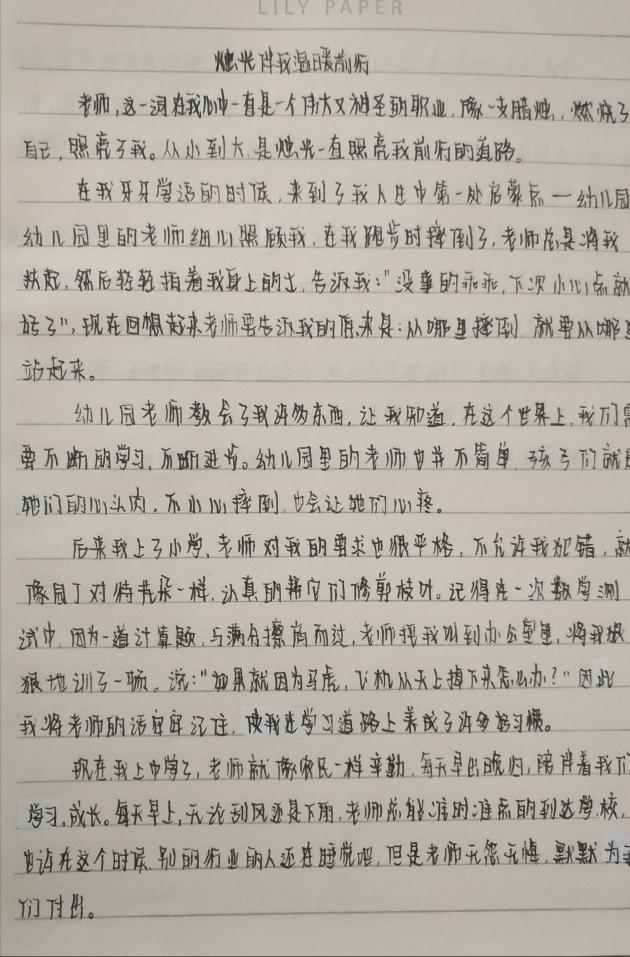 LILY PAPER
烛光伴我温暖前行
老师,这一词在我心中一直是一个伟大又神圣的职业,像一支腊烛,燃烧了
自己,照亮了我。从小到大,是烛光一直照亮我前行的道路。
在我牙牙学语的时候,来到了我人生中第一处启蒙点一幼儿园
幼儿园里的老师细心照顾我,在我跑步时摔倒了,老师总是将我
扶起,然后轻轻拍着我身上的土,告诉我:"没事的乖乖,下次小心点就
好了",现在回想起来老师要告诉我的原来是:从哪里摔倒,就要从哪里
站起来。
幼儿园老师教会了我许多东西,让我知道,在这个世界上,我们需
要不断的学习,不断进步。幼儿园里的老师也并不简单,孩子们就是
她们的心头肉,不小心摔倒,也会让她们心疼。
后来我上了小学,老师对我的要求也很严格,不允许我犯错,就
像园丁对待花朵一样,认真的帮它们修剪枝叶。记得在一次数学测
试中,因为一道计算题,与满分擦肩而过,老师把我叫到办公室里,将我狠
狠地训了一顿。说:"如果就因为马虎,飞机从天上掉下来怎么办?"因此
我将老师的话牢牢记住,使我在学习道路上养成了许多好习惯。
现在,我上中学了,老师就像农民一样辛勤,每天早出晚归,陪伴着我们
学习,成长。每天早上,无论刮风还是下雨,老师总能准时准点的到达学校,
也许在这个时候,别的行业的人还在睡觉吧,但是老师无怨无悔,默默为我
们付出。